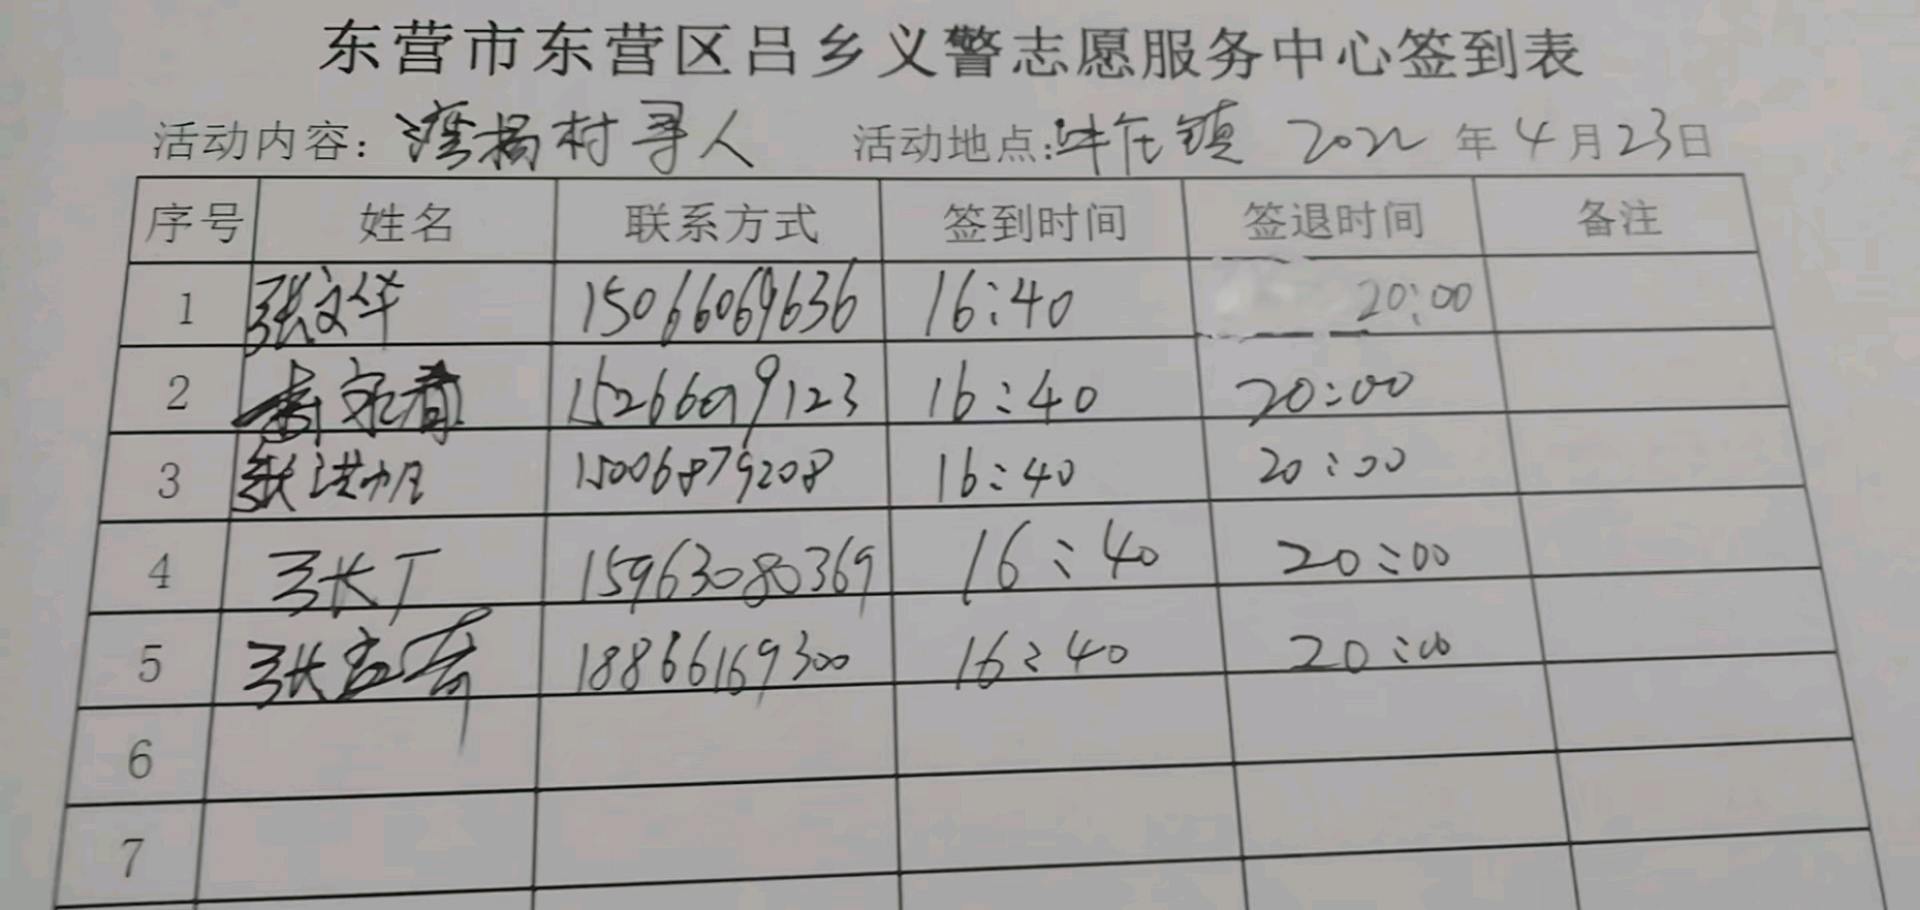 东营市东营区吕乡义警志愿服务中心签到表
活动内容: 湾杨村寻人 活动地点: 牛庄镇 2022 年 4 月 23 日
序号 姓名 联系方式 签到时间 签退时间 备注
1 张文华 15066069636 16:40 20:00
2 15266019123 16:40 20:00
3 张洪帆 15006879208 16:40 20:00
4 张丁 15963080369 16:40 20:00
5 张 18866169300 16:40 20:00
6
7